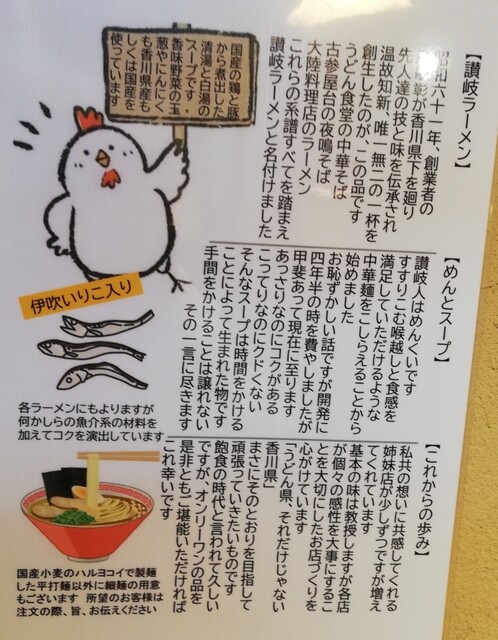 【讃岐ラーメン】
昭和六十一年、創業者の
彰が香川県下を廻り
先人達の技と味を伝承され
温故知新、唯一無二の一杯を
創生したのが、この品です
うどん食堂の中華そば
古参屋台の夜鳴そば
大陸料理店のラーメン
これらの系譜すべてを踏まえ
讃岐ラーメンと名付けました
国産の鶏と豚
から煮出した
清湯と白湯の
スープです・
香味野菜の玉
葱やにんにく
も香川県産も
しくは国産を
使っています
【めんとスープ】
讃岐人はめんくいです
すすりこむ喉越しと食感を
満足していただけるような
中華麺をこしらえることから
始めました
お恥ずかしい話ですが開発に
四年半の時を費やしましたが
甲斐あって現在に至ります
あっさりなのにコクがある
こってりなのにクドくない
そんなスープは時間をかける
ことによって生まれた物です
手間をかけることは譲れない
その一言に尽きます
伊吹いりこ入り
各ラーメンにもよりますが
何かしらの魚介系の材料を
加えてコクを演出しています
【これからの歩み】
私共の想いに共感してくれる
姉妹店が少しずつですが増え
てくれています
基本の味は教授しますが各店
が個々の感性を大事にするこ
とを大切にしたお店づくりを
心がけています
「うどん県、それだけじゃない
香川県」
まさにそのとおりを目指して
頑張っていきたいものです
飽食の時代と言われて久しい
ですが、オンリーワンの品を
是非ともご堪能いただければ
これ幸いです
国産小麦のハルヨコイで製麺
した平打麺以外に細麺の用意
もございます 所望のお客様は
注文の際、旨、お伝えください